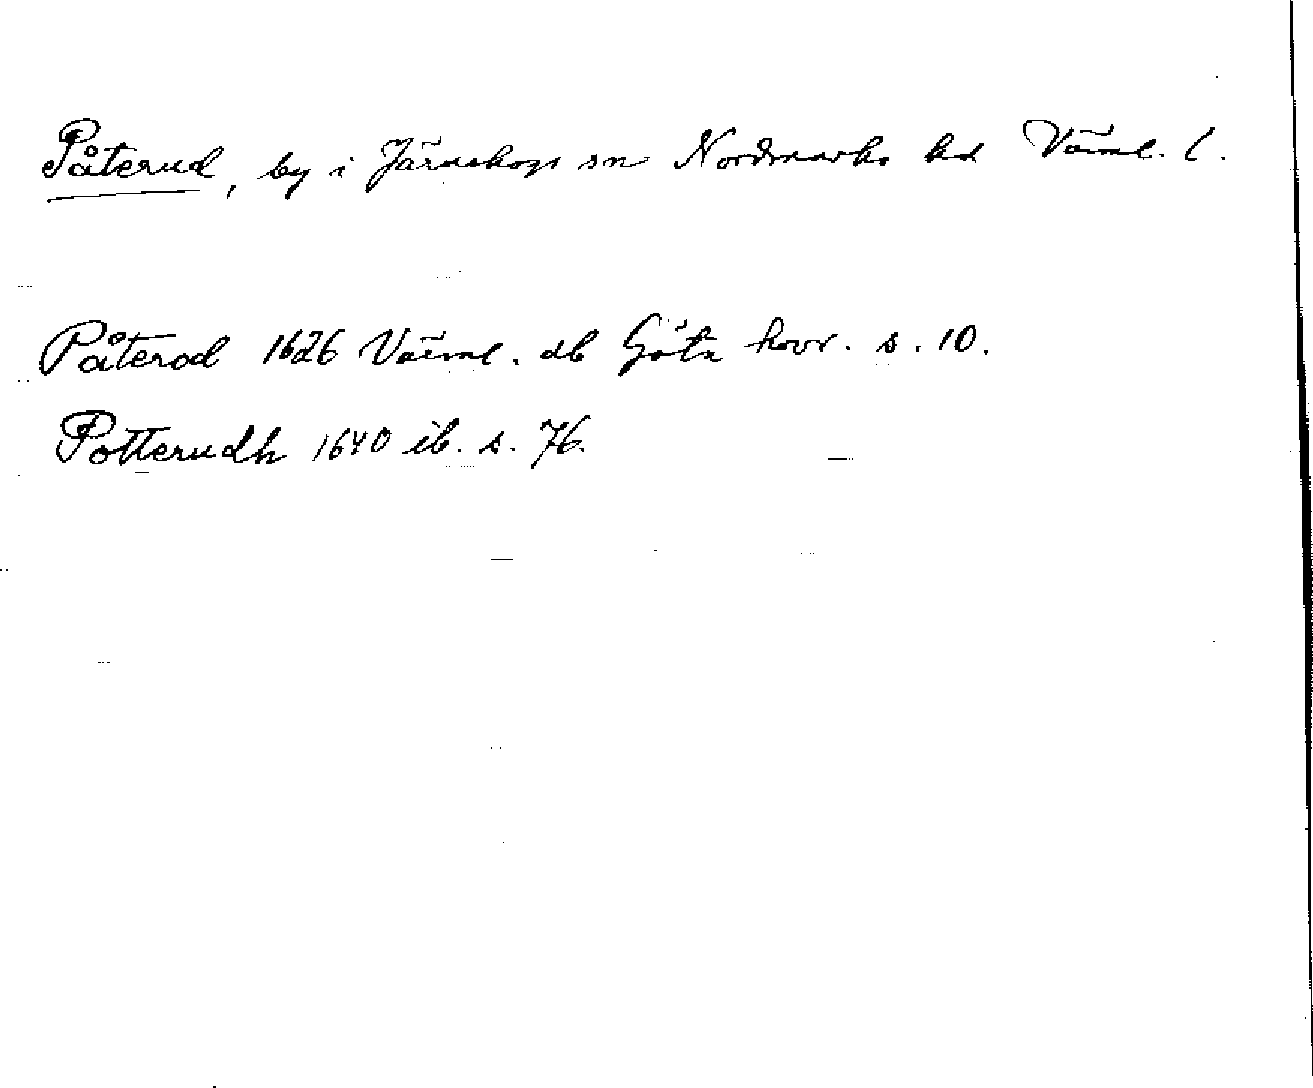 Påterud, by i Järnskogs sn Nordmarks hd Värml. l.
Påterod 1626 Värml. db Göta hovr. s. 10.
Potterudh 1640 ib. s. 76.